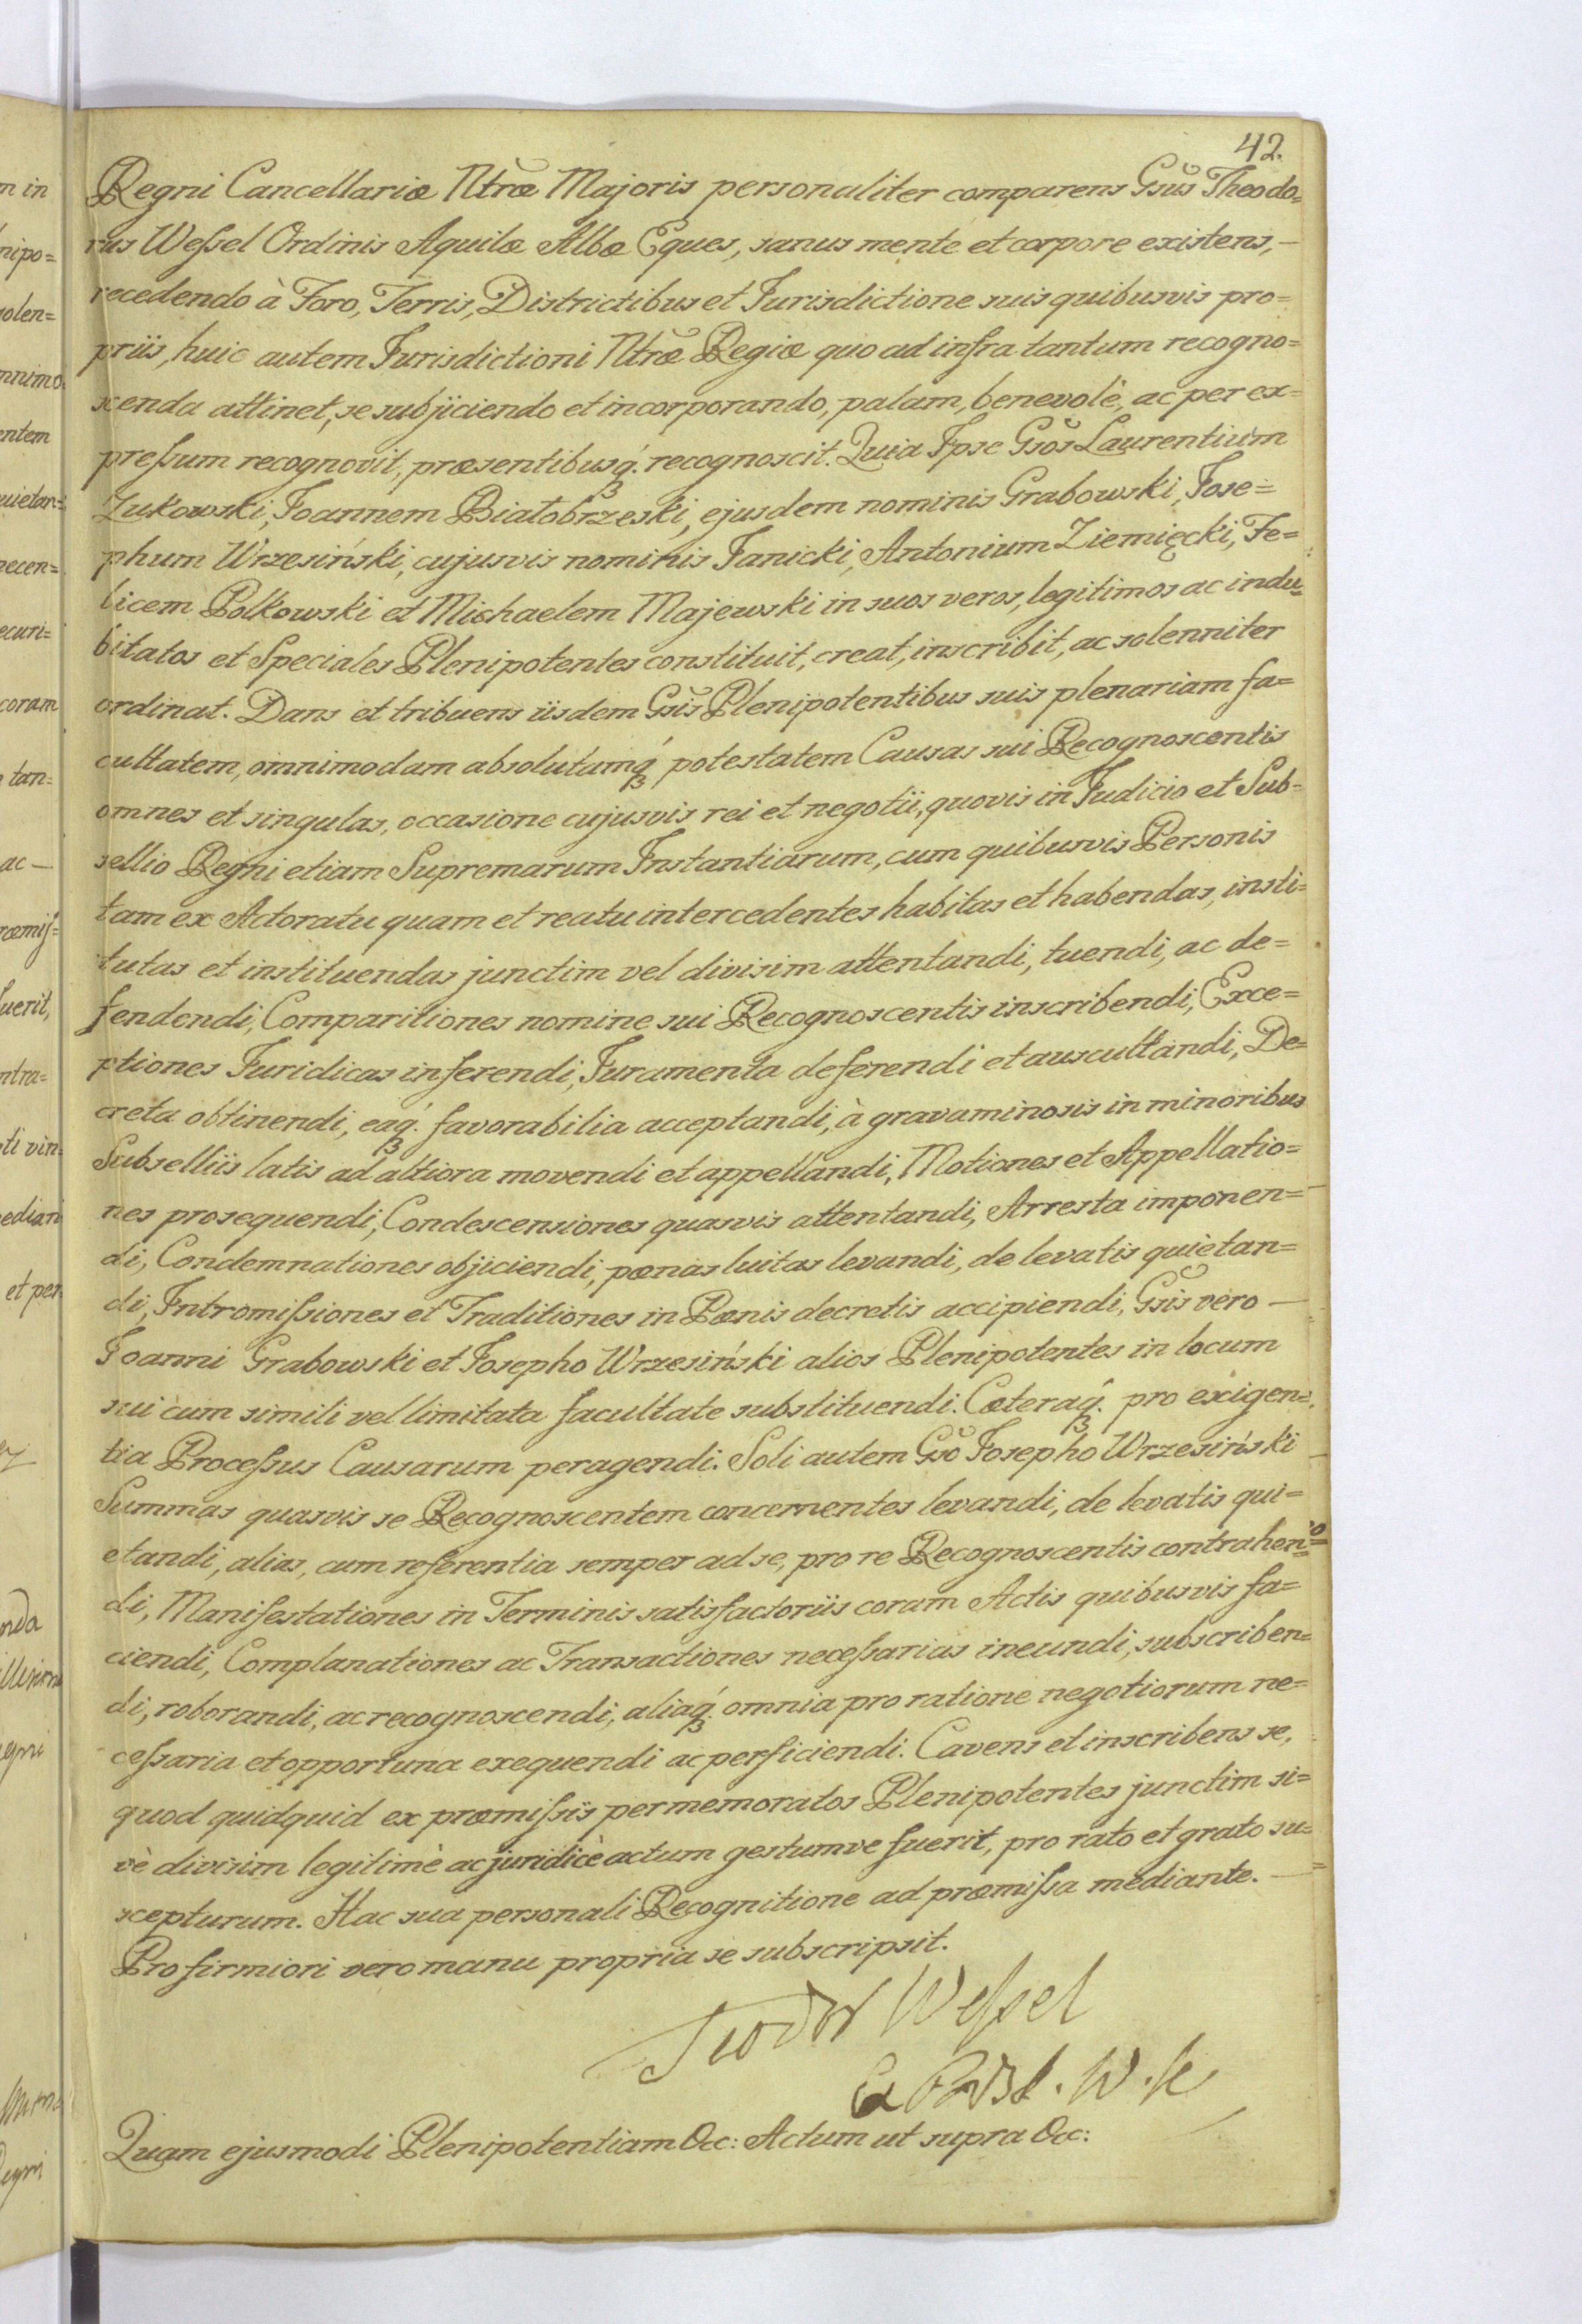 42.
Regni Cancellariæ Ntræ Majoris personaliter comparens Gsus Theodo=
rus Weſsel Ordinis Aquilæ Albæ Eques, sanus mente et corpore existens, —
recedendo à Foro, Terris, Districtibus et Jurisdictione suis quibusvis pro=
priis, huic autem Jurisdictioni Ntræ Regiæ quo ad infra tantum recogno=
scenda attinet, se subjiciendo et incorporando, palam, benevolè, ac per ex=
preſsum recognovit, præsentibusq́. recognoscit. Quia Ipse Gsos Laurentium
Zukowski, Joannem Białobrzeski, ejusdem nominis Grabowski, Jose=
phum Wrzesiński, cujusvis nominis Janicki, Antonium Ziemięcki, Fe=
licem Polkowski et Michaelem Majewski in suos veros, legitimos ac indu=
bitatos et Speciales Plenipotentes constituit, creat, inscribit, ac solenniter
ordinat. Dans et tribuens iisdem Gsis Plenipotentibus suis plenariam fa=
cultatem, omnimodam absolutamq́ potestatem Causas sui Recognoscentis
omnes et singulas, occasione cujusvis rei et negotii, quovis in Judicio et Sub=
sellio Regni etiam Supremarum Instantiarum, cum quibusvis Personis
tam ex Actoratu quam et reatu intercedentes habitas et habendas, insti=
tutas et instituendas junctim vel divisim attentandi, tuendi, ac de=
fendendi, Comparitiones nomine sui Recognoscentis inscribendi, Exce=
ptiones Juridicas inferendi, Juramenta deferendi et auscultandi, De=
creta obtinendi, eaq́. favorabilia acceptandi, à gravaminosis in minoribus
Subselliis latis ad altiora movendi et appellandi, Motiones et Appellatio=
nes prosequendi, Condescensiones quasvis attentandi, Arresta imponen=
di, Condemnationes objiciendi, pœnas luitas levandi, de levatis quietan=
di, Intromiſsiones et Traditiones in Bonis decretis accipiendi, Gsis vero —
Joanni Grabowski et Josepho Wrzesiński alios Plenipotentes in locum
sui cum simili vel limitata facultate substituendi. Cæteraq́. pro exigen=
tia Proceſsus Causarum peragendi. Soli autem Gso Josepho Wrzesiński
Summas quasvis se Recognoscentem concernentes levandi, de levatis qui=
etandi, alias, cum referentia semper ad se, pro re Recognoscentis contrahen=
di, Manifestationes in Terminis satisfactoriis coram Actis quibusvis fa=
ciendi, Complanationes ac Transactiones neceſsarias ineundi, subscriben=
di, roborandi, ac recognoscendi, aliaq́. omnia pro ratione negotiorum ne=
ceſsaria et opportuna exequendi ac perficiendi. Cavens et inscribens se,
quod quidquid ex præmiſsis per memoratos Plenipotentes junctim si=
vè divisim legitimè ac juridicè actum gestumve fuerit, pro rato et grato su=
scepturum. Hac sua personali Recognitione ad præmiſsa mediante. —
Pro firmiori vero manu propria se subscripsit.
Teodor Weſsel
Quam ejusmodi Plenipotentiam &c: Actum ut supra &c: